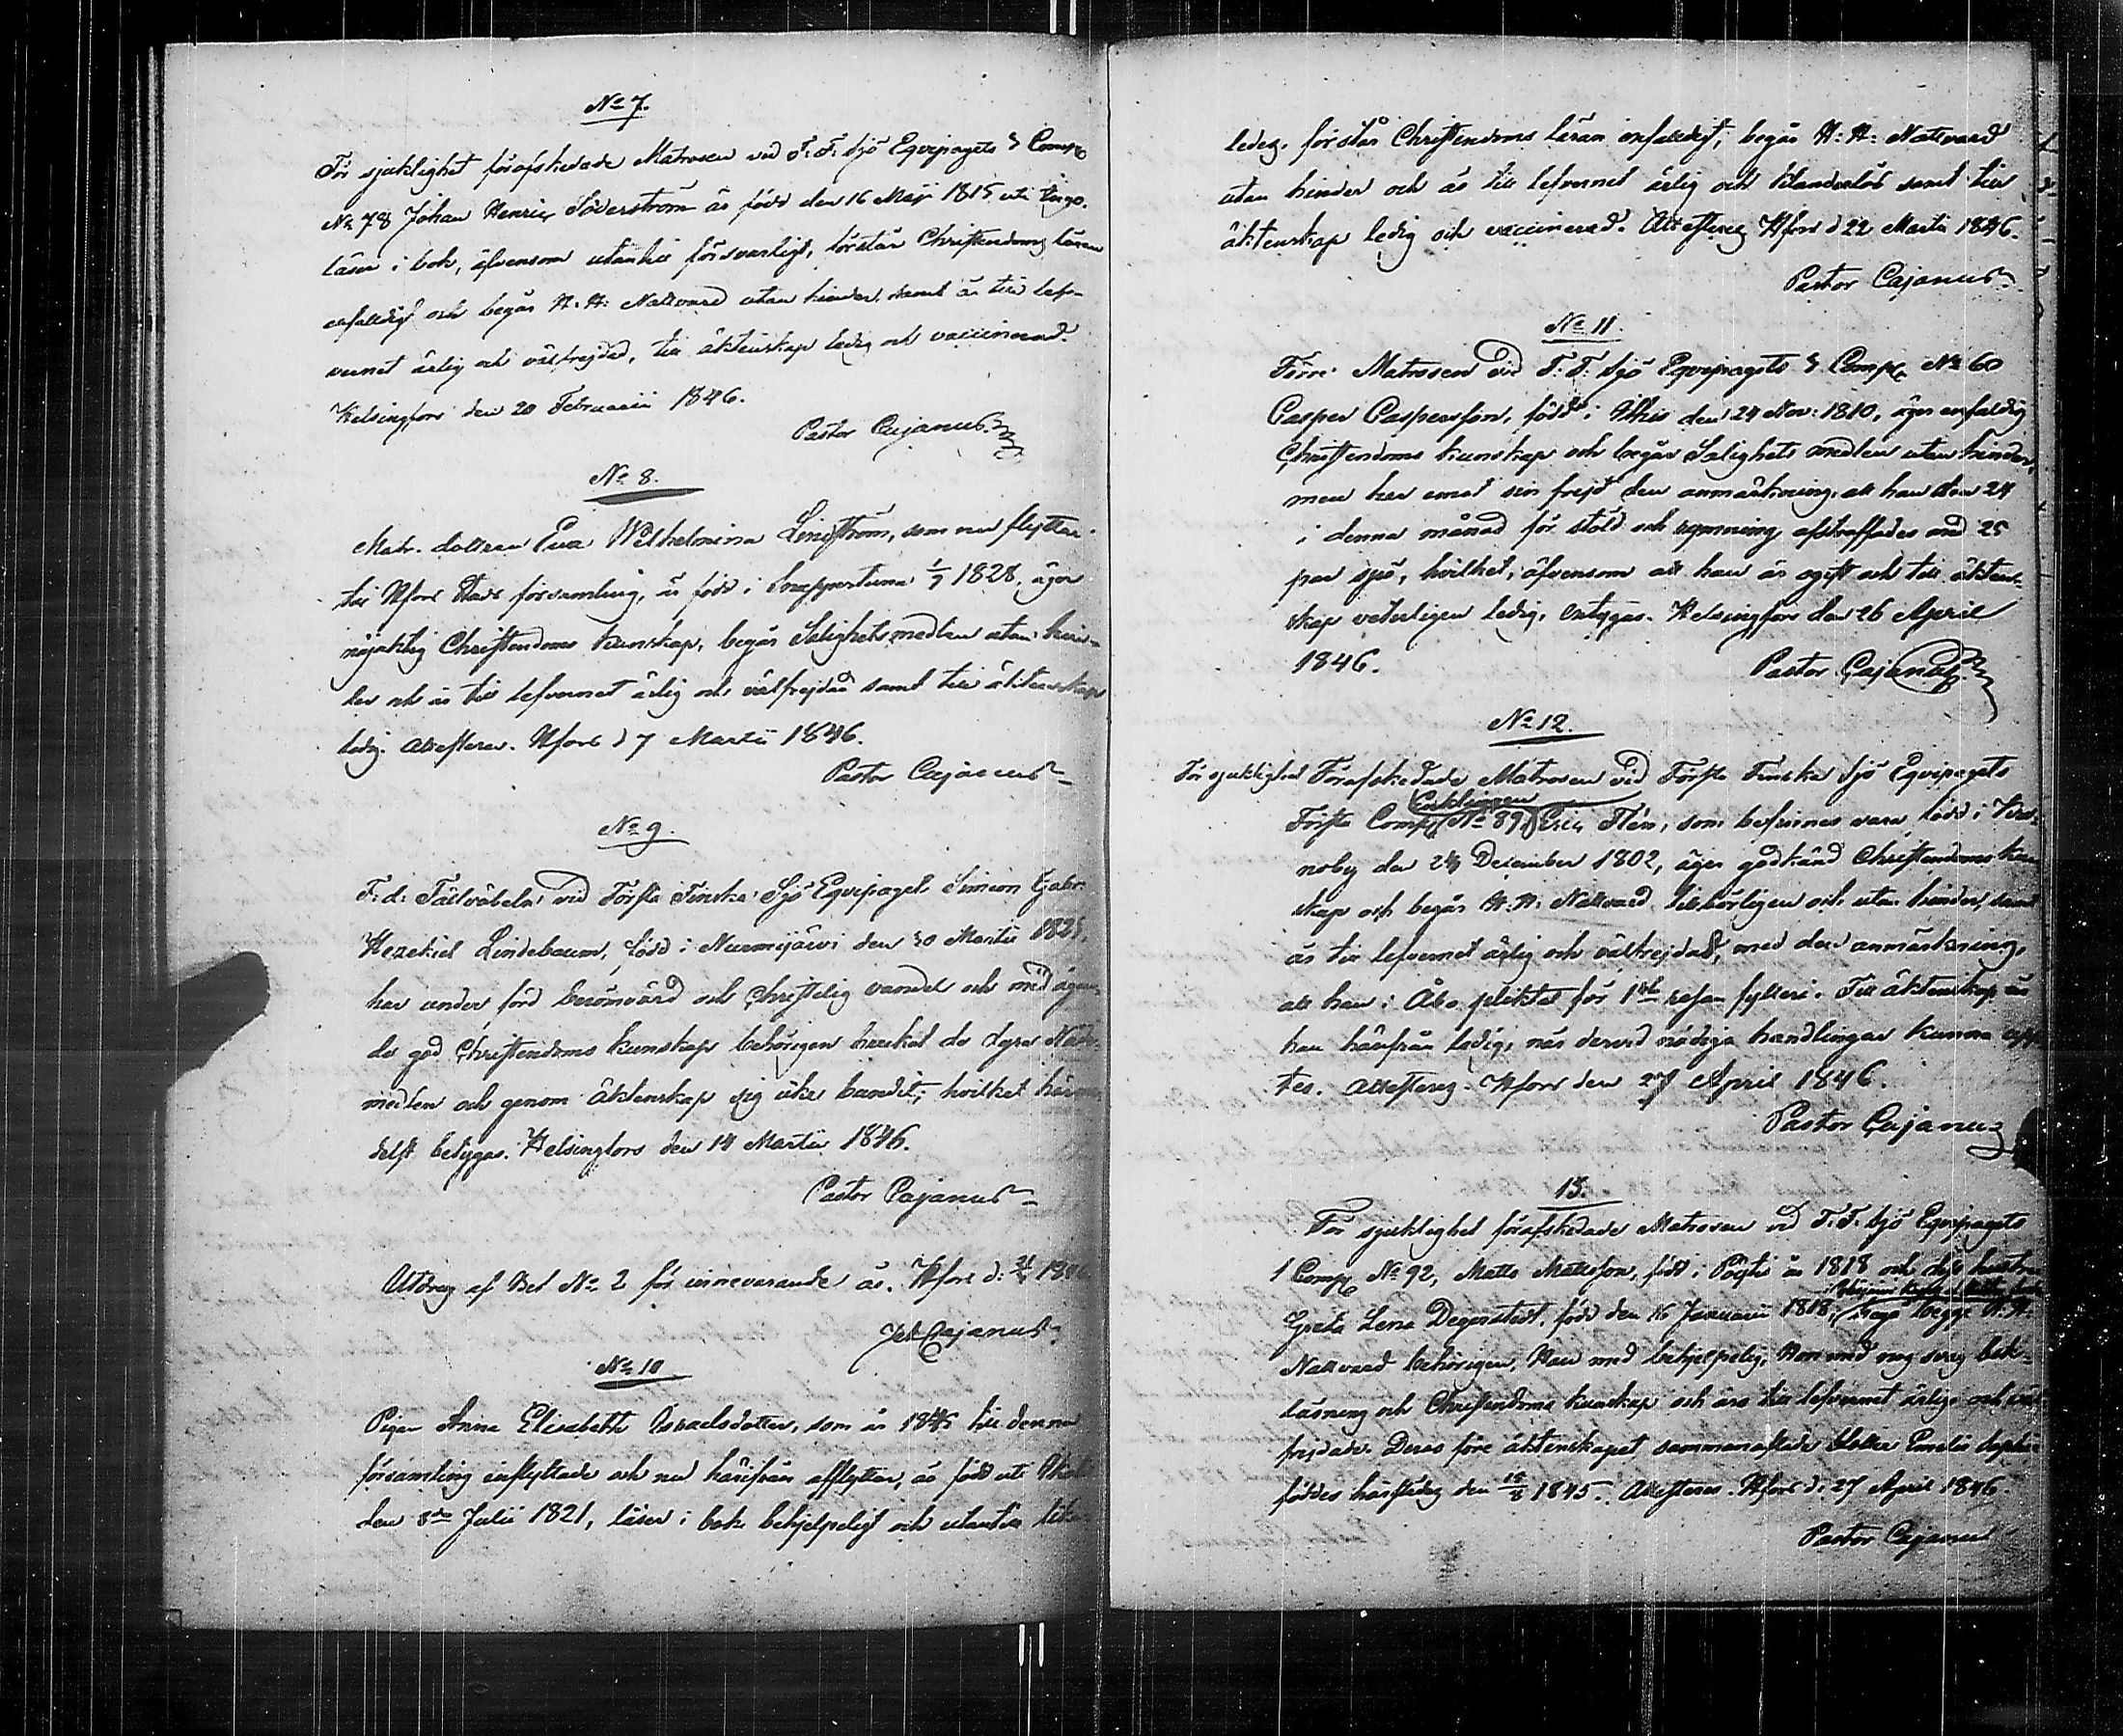 No 7.
För sjuklighet förafskedade Matrosen vid F: F: Sjö Equipagets 3 Comp.
No 78 Johan Henric Söderström är född den 16 Maji 1815 uti Ingo.
läser i bok, äfvensom utantill försvarligt, förstår Christendoms läran
enfaldigt och begår H. H. Nattvard utan hinder, samt är till lef-
vernet ärlig och välfrejdad, till äktenskap ledig och vaccinerad.
Helsingfors den 20 Februarii 1846.
Pastor Cajanus.
No 8.
Matr. dottren Eva Wilhelmina Lindström, som nu flyttar
till Hfors Stads församling, är född i 1/7 1828, äger
nöjaktig Christendoms kunskap, begår Salighets medlen utan hin-
der och är till lefvernet ärlig och välfrejdad samt till äktenskap
ledig. Attesteras. Hfors d 7 Martii 1846.
Pastor Cajanus
No 9.
F: d: Fältväbeln vid Första Finska Sjö Equipaget Simeon Gabr:
Hezekiel Lindebaum, född i Nurmijärvi den 30 Martii
har under förd berömvärd och Christelig vandel och med ägan-
de god Christendoms kunskap behörigen brukat de dyra Nåde-
medlen och genom äktenskap sig icke bundit; hvilket härme-
delst betygas. Helsingfors den 14 Martii 1846.
Pastor Cajanus
Utdrag af Bet No 2 för innevarande år. Hfors d:
Cajanus.
No 10
Pigan Anna Elisabeth Israelsdotter, som år 1845 till denna
församling inflyttade och nu härifrån afflyttar, är född uti
den 3de Julii 1821, läser i bok behjelpeligt och utantill lika-
ledes. förstår Christendoms läran enfaldigt, begår H: H: Nattvard
utan hinder och är till lefvernet ärlig och klanderlös samt till
äktenskap ledig och vaccinerad. Attesteras Hfors d 22 Martii 1846.
Pastor Cajanus
No 11.
Förre Matrosen vid F: F: Sjö Equipagets 3 Comp. No 60
Casper Caspersson, född i den 24 Nov: 1810, äger enfaldig
Christendoms kunskap och begår Salighets medlen utan hinder,
men har emot sin frejd den anmärkning, att han den 24
i denna månad för stöld och rymning afstraffades med 25
par spö, hvilket, äfvensom att han är ogift och till äkten-
skap veterligen ledig, betygas. Helsingfors den 26 April
1846. Pastor Cajanus
No 12.
För sjuklighet Förafskedade Matrosen vid Första Finska Sjö Equipagets
Enklingen
Första Comp. No 89, Eric Flén, som befinnes vara född i Kro-
noby den 24 December 1802, äger godkänd Christendoms kun-
skap och begår H: H: Nattvard tillbörligen och utan hinder, samt
är till lefvernet ärlig och välfrejdad, med den anmärkning,
att han i Åbo pliktat för 1sta resan fylleri. Till äktenskap är
han härifrån ledig, när dervid nödiga handlingar kunna upp-
tes. Attesteras. Hfors den 27 April 1846.
Pastor Cajanus
13.
För sjuklighet förafskedade Matrosen vid F: F: Sjö Equipagets
1 Comp. No 92, Matts Mattsson, född i Pöytis år 1818 och dess hustru
Greta Lena Degerstedt, född den 16 Januarii 1818, begge H. H.
Nattvard behörigen, Han med behjelpelig, Hon med nog svag bok-
läsning och Christendoms kunskap och äro till lefvernet ärliga och väl-
frejdade. Deras före äktenskapet sammanaflade dotter Emelie Sophia
föddes härstädes den 1845. Attesteras. Hfors d: 27 April 1846.
Pastor Cajanus